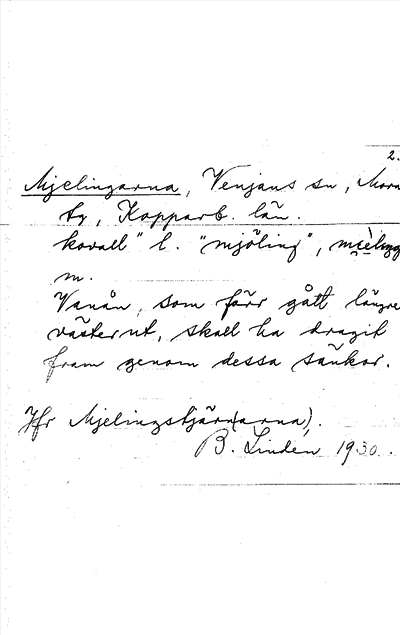 2.
Mjelingarna, Venjans sn, Mora
tg, Kopparb. län.
korall" l. "mjöling",
m.
Vanån, som förr gått längre
västerut, skall ha dragit
fram genom dessa sänkor.
Jfr Mjelingstjärn(arna).
B. Lindén 1930.